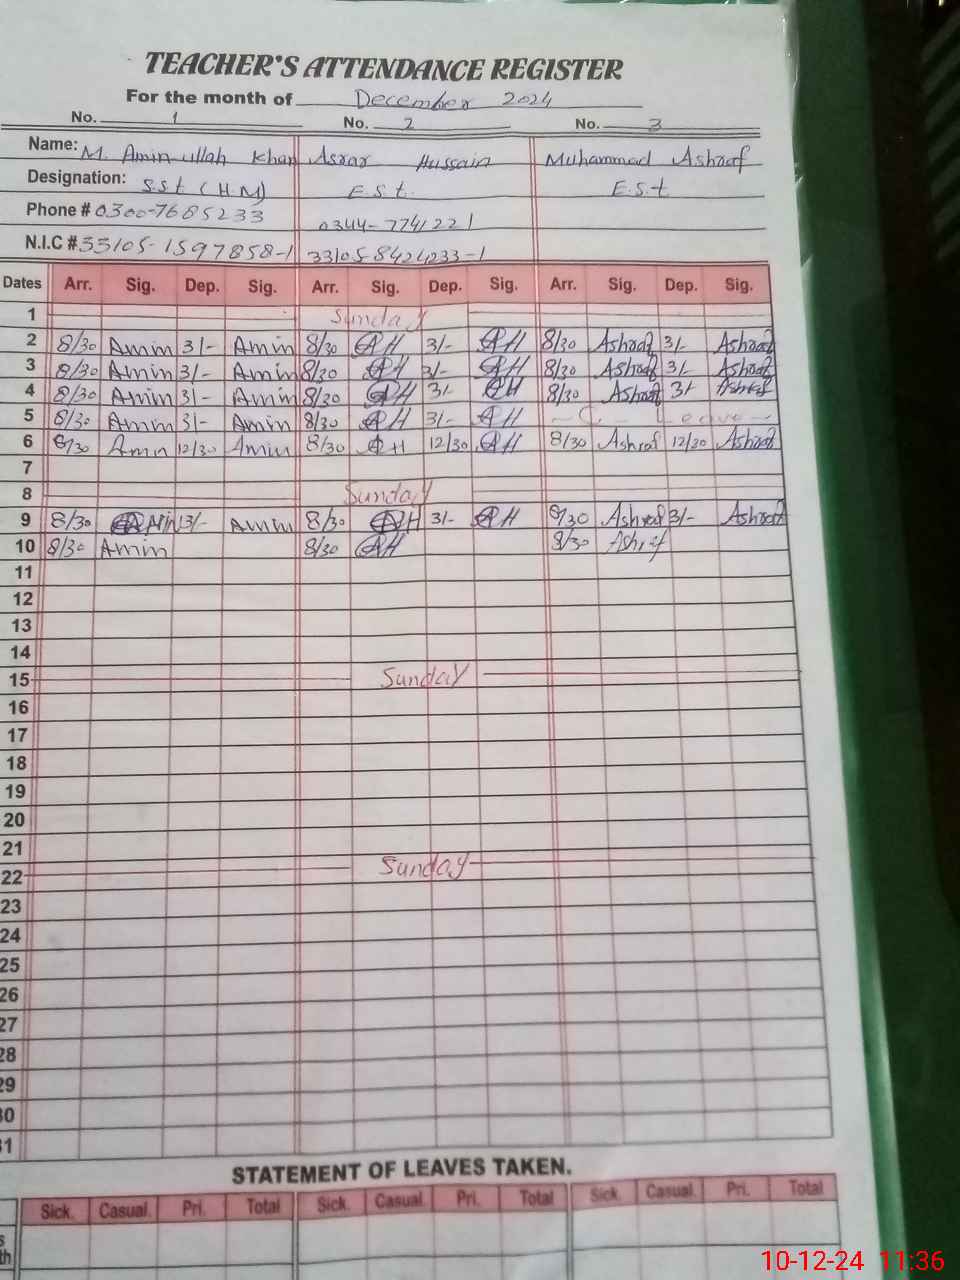 TEACHER'S ATTENDANCE REGISTER
For the month of December 2024
No. 1 No. 2 No. 3
Name: M. Amin ullah Khan Asrar Hussain Muhammad Ashraf
Designation: S.S.t (H.M) E.S.t. E.S.t
Phone # 0300-7685233 0344-7741221
N.I.C # 33105-1597858-1 33105-8424233-1
Dates Arr. Sig. Dep. Sig. Arr. Sig. Dep. Sig. Arr. Sig. Dep. Sig.
1 Sunday
2 8/30 Amin 3/- Amin 8/30 AH 3/- AH 8/30 Ashraf 3/- Ashraf
3 8/30 Amin 3/- Amin 8/30 AH 3/- AH 8/30 Ashraf 3/- Ashraf
4 8/30 Amin 3/- Amin 8/30 AH 3/- AH 8/30 Ashraf 3/- Ashraf
5 8/30 Amin 3/- Amin 8/30 AH 3/- AH C. Leave
6 8/30 Amin 12/30 Amin 8/30 AH 12/30 AH 8/30 Ashraf 12/30 Ashraf
7
8 Sunday
9 8/30 Amin 3/- Amin 8/30 AH 3/- AH 8/30 Ashraf 3/- Ashraf
10 8/30 Amin 8/30 AH 8/30 Ashraf
11
12
13
14
15 Sunday
16
17
18
19
20
21
22 Sunday
23
24
25
26
27
28
29
30
31
STATEMENT OF LEAVES TAKEN.
Sick. Casual. Pri. Total Sick. Casual. Pri. Total Sick. Casual. Pri. Total
10-12-24 11:36